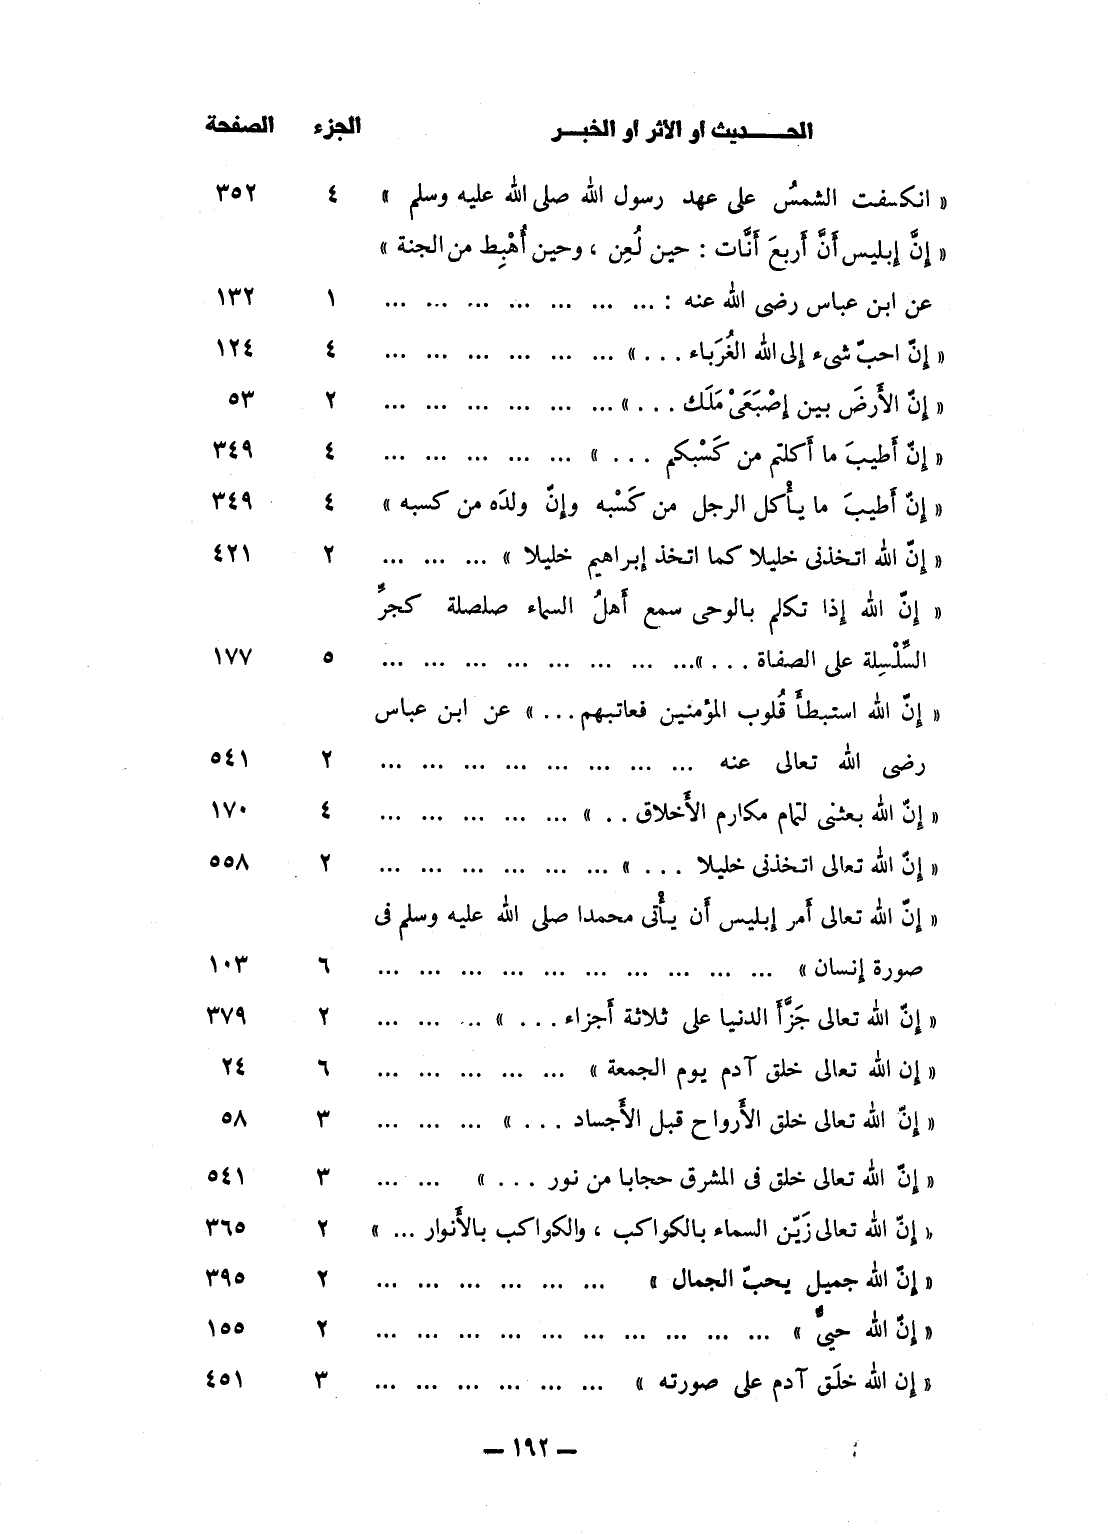 الحـــــديث او الأثر او الخبـــر الجزء الصفحة
« انكسفت الشمسُ على عهد رسول الله صلى الله عليه وسلم » ٤ ٣٥٢
« إنَّ إبليس أَنَّ أَربعَ أَنَّات : حين لُعِن ، وحين أُهْبِط من الجنة »
عن ابن عباس رضى الله عنه : ... ... ... ... ... ... ... ١ ١٣٢
« إنّ احبّ شىء إلى الله الغُرَباء ... » ... ... ... ... ... ... ٤ ١٢٤
« إنّ الأَرضَ بين إصْبَعَىْ مَلَك ... » ... ... ... ... ... ... ٢ ٥٣
« إنّ أَطيبَ ما أَكلتم من كَسْبكم ... » ... ... ... ... ... ٤ ٣٤٩
« إنّ أَطيبَ ما يأْكل الرجل من كَسْبه وإنّ ولدَه من كسبه » ٤ ٣٤٩
« إنّ الله اتخذنى خليلا كما اتخذ إبراهيم خليلا » ... ... ... ٢ ٤٢١
« إنّ الله إذا تكلم بالوحى سمع أَهلُ السماء صلصلة كجرِّ
السِّلْسِلة على الصفاة ... » ... ... ... ... ... ... ... ... ٥ ١٧٧
« إنّ الله استبطأَ قُلوب المؤمنين فعاتبهم ... » عن ابن عباس
رضى الله تعالى عنه ... ... ... ... ... ... ... ... ٢ ٥٤١
« إنّ الله بعثنى لتمام مكارم الأَخلاق .. » ... ... ... ... ... ٤ ١٧٠
« إنّ الله تعالى اتخذنى خليلا ... » ... ... ... ... ... ... ٢ ٥٥٨
« إنّ الله تعالى أَمر إبليس أَن يأْتى محمدا صلى الله عليه وسلم فى
صورة إنسان » ... ... ... ... ... ... ... ... ... ... ٦ ١٠٣
« إنّ الله تعالى جَزَّأَ الدنيا على ثلاثة أَجزاء ... » ... ... ... ٢ ٣٧٩
« إن الله تعالى خلق آدم يوم الجمعة » ... ... ... ... ... ٦ ٢٤
« إنّ الله تعالى خلق الأَرواح قبل الأَجساد ... » ... ... ... ٣ ٥٨
« إنّ الله تعالى خلق فى المشرق حجابا من نور ... » ... ... ٣ ٥٤١
« إنّ الله تعالى زَيّن السماء بالكواكب ، والكواكب بالأَنوار ... » ٢ ٣٦٥
« إنّ الله جميل يحبّ الجمال » ... ... ... ... ... ... ٢ ٣٩٥
« إنّ الله حيىٌّ » ... ... ... ... ... ... ... ... ... ... ٢ ١٥٥
« إن الله خلَق آدم على صورته » ... ... ... ... ... ... ٣ ٤٥١
— ١٩٢ —